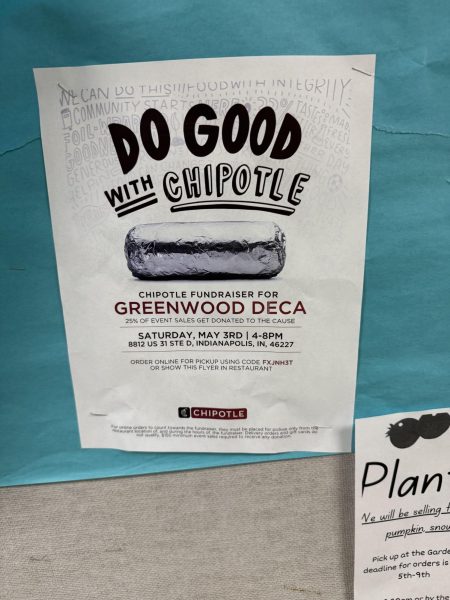 WE CAN DO THIS!!! FOOD WITH INTEGRITY
COMMUNITY STARTS
DO GOOD
WITH CHIPOTLE
CHIPOTLE FUNDRAISER FOR
GREENWOOD DECA
25% OF EVENT SALES GET DONATED TO THE CAUSE
SATURDAY, MAY 3RD | 4-8PM
8812 US 31 STE D, INDIANAPOLIS, IN, 46227
ORDER ONLINE FOR PICKUP USING CODE FXJNH3T
OR SHOW THIS FLYER IN RESTAURANT
CHIPOTLE
For online orders to count towards the fundraiser, they must be placed for pickup only from the
restaurant location of, and during the hours of the fundraiser. Delivery orders and gift cards do
not qualify. $150 minimum event sales required to receive any donation.
Plant
We will be selling
pumpkin,
Pick up at the
deadline for orders is
5th-9th
or by the